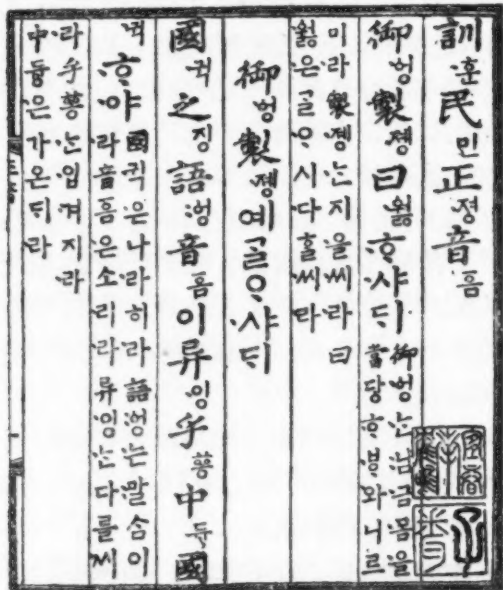 訓훈民민正졍音흠
御엉製졩曰왏ᄒᆞ샤ᄃᆡ
御엉는님금몸을
當당ᄒᆞᄫᆞ와니르
미라製졩는지을씨라曰
왏은ᄀᆞᆯᄋᆞ시다홀씨라
御엉製졩예ᄀᆞᆯᄋᆞ샤ᄃᆡ
國귁之징語엉音흠이异잉乎ᅘᅩᆼ中듕國
귁ᄒᆞ야
國귁은나라히라語엉는말ᄊᆞᆷ이
라音흠은소리라异잉는다를씨
라乎ᅘᅩᆼ는입겨지라
中듕은가온ᄃᆡ라